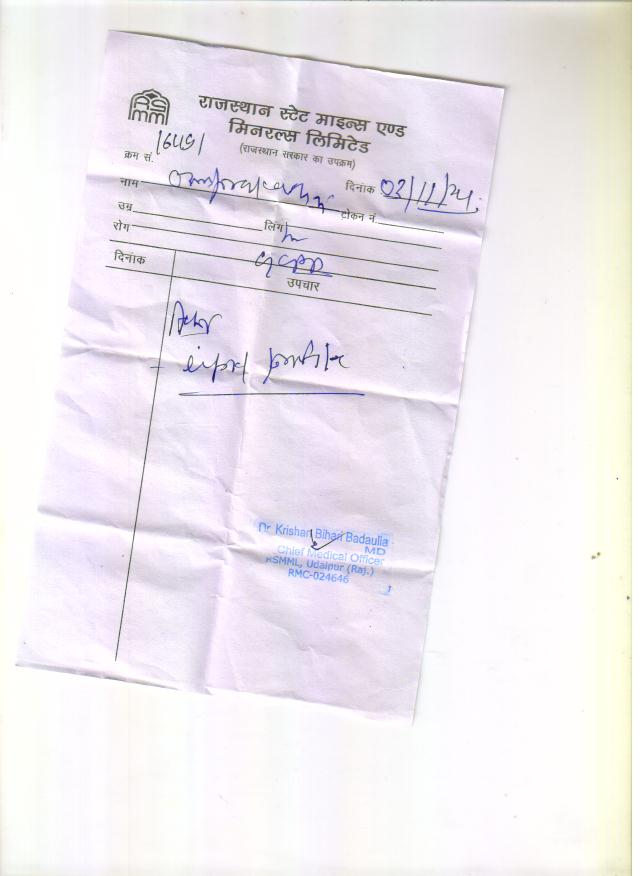 RSMM
राजस्थान स्टेट माइन्स एण्ड
मिनरल्स लिमिटेड
(राजस्थान सरकार का उपक्रम)
क्रम सं.
नाम Omprakash दिनांक 02/11/24
उम्र लिंग M टोकन नं.
रोग
दिनांक उपचार
Adv
Lipid profile
Dr Krishan Bihari Badaulia
MD
Chief Medical Officer
RSMML, Udaipur (Raj.)
RMC-024646